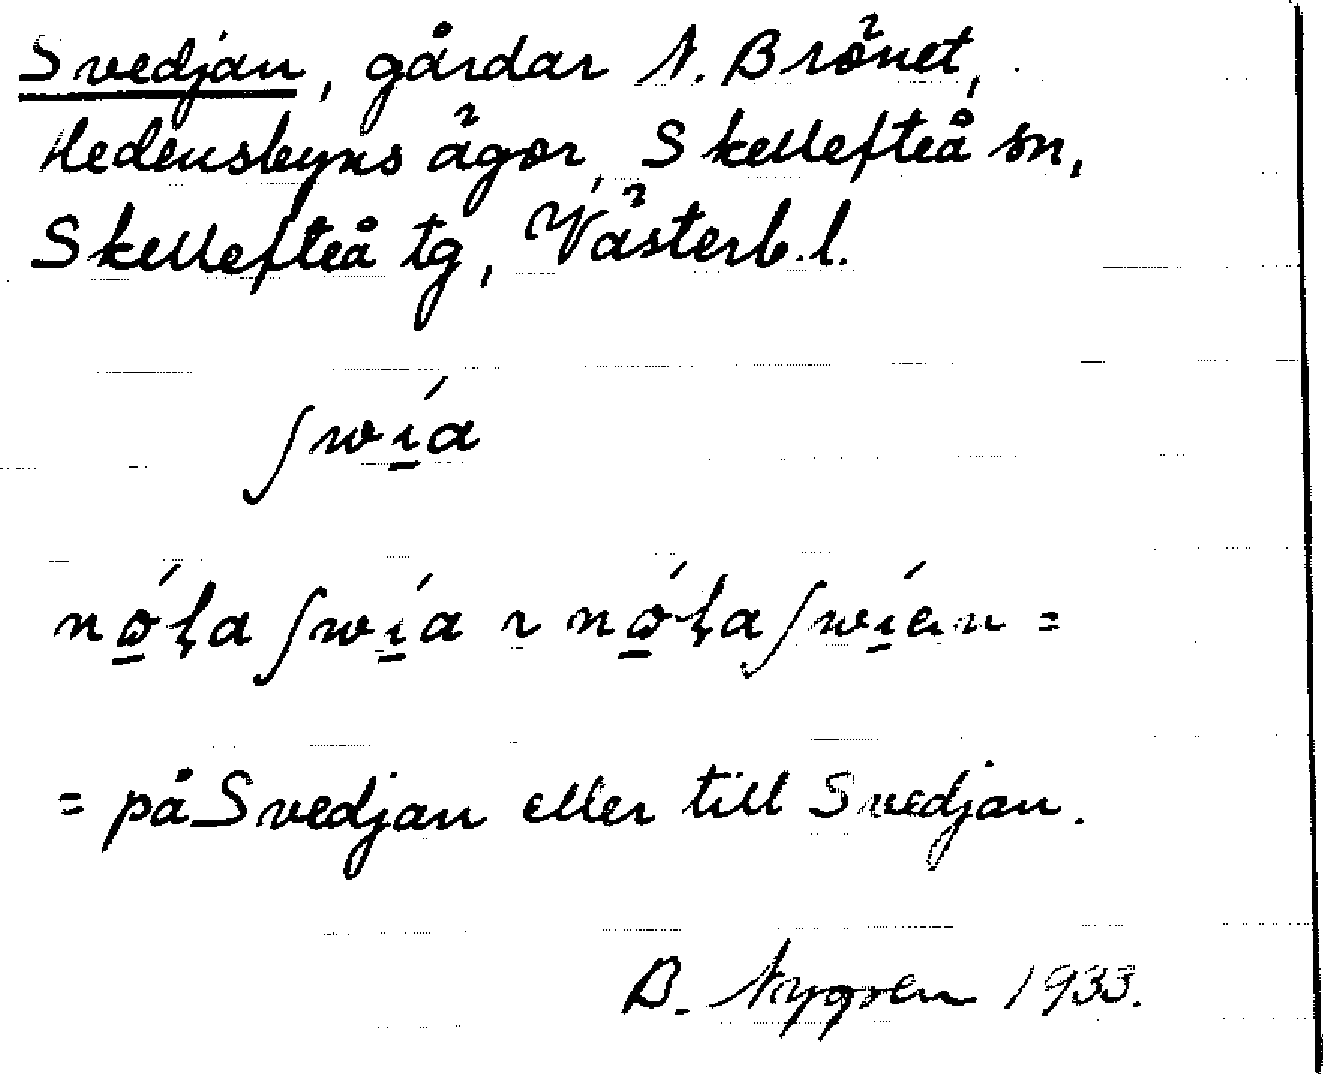 Svedjan, gårdar N. Brönet,
Hedensbyns ägor, Skellefteå sn,
Skellefteå tg, Västerb.l.
ʃwí̲a
nǿ̲ɭa ʃwí̲a ~ nǿ̲ɭa ʃwí̲an =
= på Svedjan eller till Svedjan.
B. Nygren 1933.